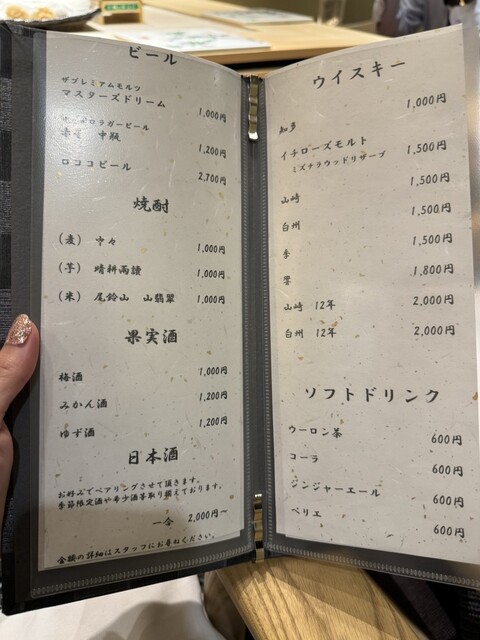 ビール
ザプレミアムモルツ
マスターズドリーム 1,000円
サッポロラガービール
赤星 中瓶 1,200円
ロココビール 2,700円
焼酎
(麦) 中々 1,000円
(芋) 晴耕雨讀 1,000円
(米) 尾鈴山 山翡翠 1,000円
果実酒
梅酒 1,000円
みかん酒 1,200円
ゆず酒 1,200円
日本酒
お好みでペアリングさせて頂きます。
季節限定酒や希少酒等取り揃えております。
一合 2,000円～
金額の詳細はスタッフにお尋ねください。
ウイスキー
知多 1,000円
イチローズモルト
ミズナラウッドリザーブ 1,500円
山崎 1,500円
白州 1,500円
季 1,500円
響 1,800円
山崎 12年 2,000円
白州 12年 2,000円
ソフトドリンク
ウーロン茶 600円
コーラ 600円
ジンジャーエール 600円
ペリエ 600円